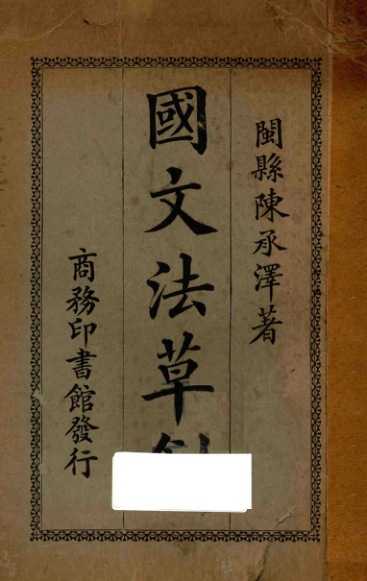 閩縣陳承澤著
國文法草
商務印書館發行